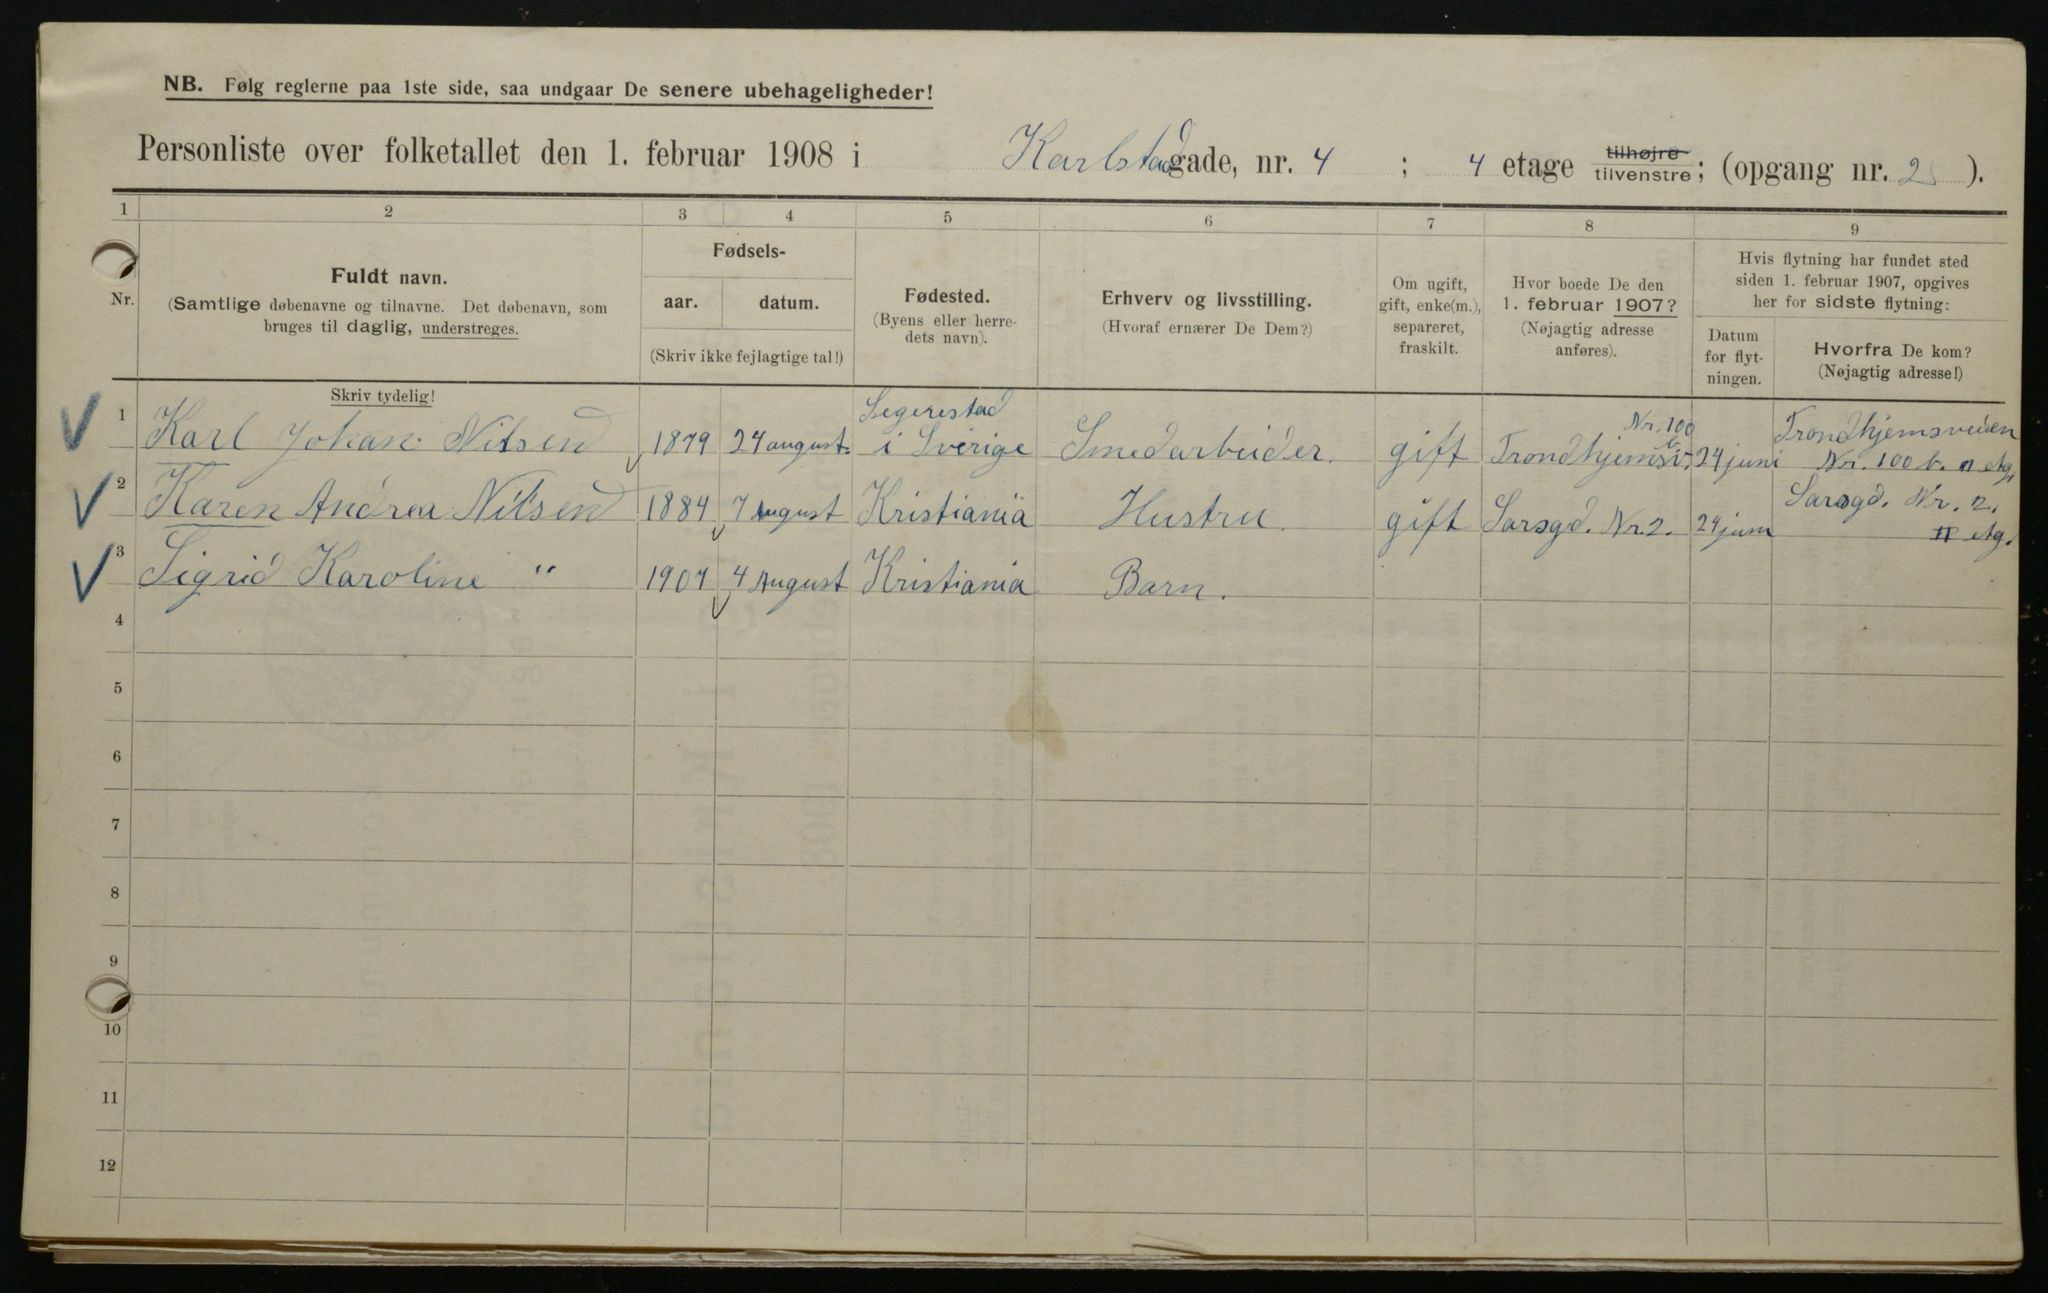 NB. Følg reglerne paa 1ste side, saa undgaar De senere ubehageligheder!
Personliste over folketallet den 1. februar 1908 i Karlstadgade, nr. 4 ; 4 etage tilhøjre tilvenstre; (opgang nr. 2 ).
1 2 3 4 5 6 7 8 9
Nr.
Fuldt navn.
(Samtlige døbenavne og tilnavne. Det døbenavn, som
bruges til daglig, understreges.
Skriv tydelig!
Fødsels-
aar. datum.
(Skriv ikke fejlagtige tal!)
Fødested.
(Byens eller herre-
dets navn).
Erhverv og livsstilling.
(Hvoraf ernærer De Dem?)
Om ugift,
gift, enke(m.),
separeret,
fraskilt.
Hvor boede De den
1. februar 1907?
(Nøjagtig adresse
anføres).
Hvis flytning har fundet sted
siden 1. februar 1907, opgives
her for sidste flytning:
Datum
for flyt-
ningen.
Hvorfra De kom?
(Nøjagtig adresse!)
1 Karl Johan Nilsen 1879 24 august Segerestad i Sverige Smedarbeider. gift Trondhjemsv. Nr. 100 b. 24 juni Trondhjemsveien Nr. 100 b. II etg.
2 Karen Andrea Nilsen 1884 7 August Kristiania Hustru. gift Sarsgd. Nr. 2. 24 juni Sarsgd. Nr. 2. II etg.
3 Sigrid Karoline " 1907 4 August Kristiania Barn.
4
5
6
7
8
9
10
11
12